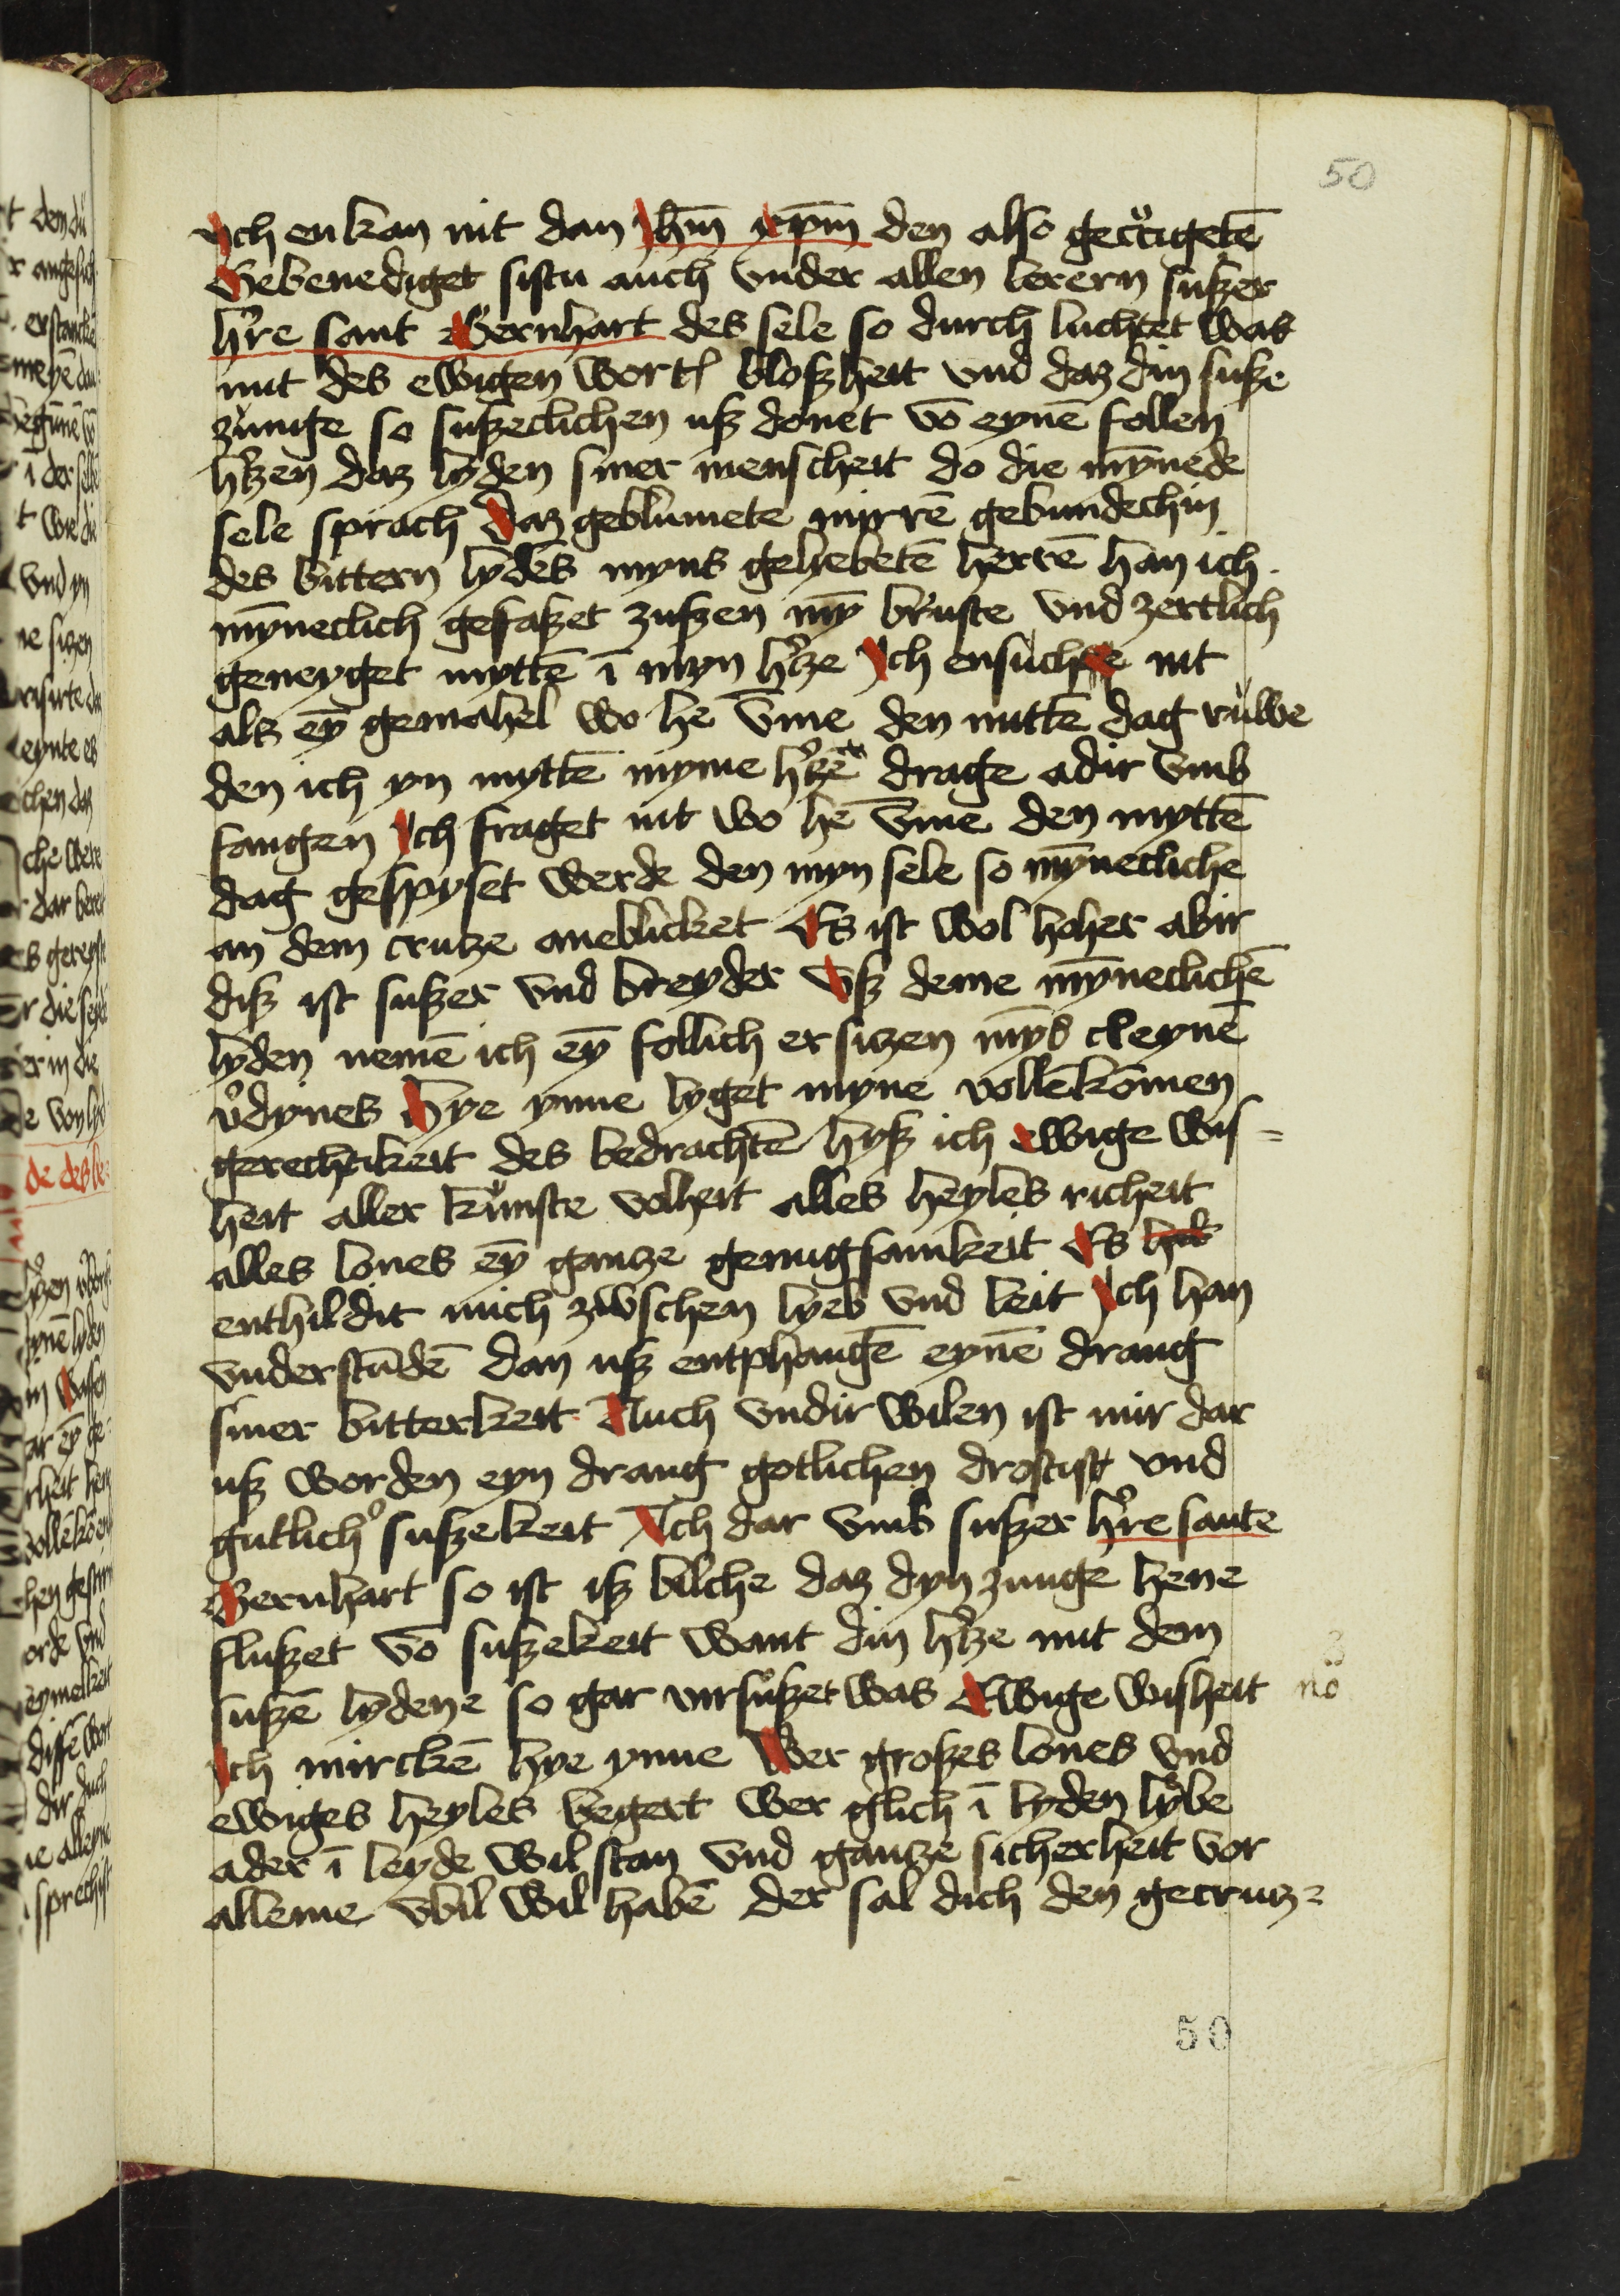 50
Ich enkan nit dan Jhm̄ xp̄m den also gecrucigetē
Gebenediget sistu auch vnder allen lerern sußer
hr̓e sant Bernhart des sele so durch luchtet was
mit des ewigen wortꝭ bloßheit vnd daz din suße
zůnge so sußeclichen uß donet vō eynē follen
hr̓tzen daz lyden siner menscheit do die my̅nede
sele sprach Daz geblumete mirrē gebundechin
des bittern lydēs myns geliebetē herrē han ich
my̅neclich gesaßet zußen my̅ bruste vnd zertlich
geneyget myttē ī myn hr̓tze Ich ensuche nit
als ey̅ gemahel wo he vm̅e den mittē dag růwe
den ich yn myttē myme hr̓tzē drage adir vmb
fangen Ich fraget nit wo he vm̅e den myttē
dag gespyset werde den myn sele so my̅necliche
an dem crutze aneblicket Es ist wol hoher abir
diß ist sußer vnd breyder vß deme my̅neclichē
lyden nemē ich ey̅ follich ersitzen my̅s cleynē
v̓dynes Hye ynne lyget myne vollēkōmen
gerechtikeit des bedrachtē hyß ich ewige wis=
heit aller kůnste volheit alles heyles richeit
alles lones ey̅ gantze genugsamkeit Es
enthildit mich zwschen lyeb vnd leit Ich han
vnderstūdē dan uß entphangē eynē drang
siner bitterkeit Auch vndir wilen ist mir dar
uß worden eyn drang gotlichen drostist vnd
gutlich̓ sußekeit Ach dar vmb sußer hr̓e sante
Bernhart so ist iß bilche daz dyn zunge hene
flußet vō sußekeit want din hr̓tze mit dem
sußē lydene so gar virsůßet was Ewige wisheit
no
Ich mirckē hye ynne Wer großes lones vnd
ewiges heyles begert wer glich ī lyden lybe
ader ī leyde wil stan vnd gantze sicherheit vor
alleme vbil wil habē der sal dich den gecrutz=
50